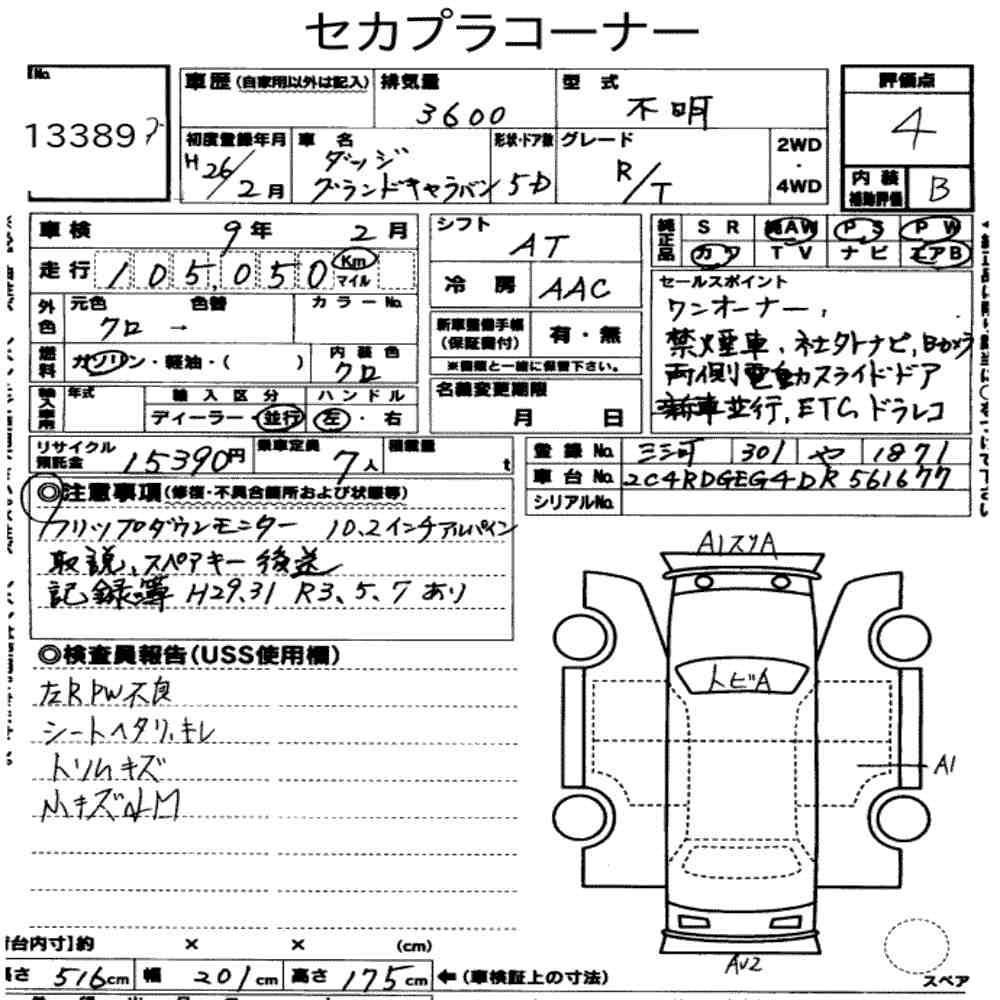 セカプラコーナー
No.
13389
車歴(自家用以外は記入) 排気量 3600 型式 不明
評価点 4
内装補助評価 B
初度登録年月 H26/2月 車名 ダッジ グランドキャラバン 形状・ドア数 5D グレード R/T 2WD・4WD
車検 9年 2月
走行 105,050 Km マイル
シフト AT
冷房 AAC
純正品 SR 純AW PS PW
カワ TV ナビ エアB
外色 元色 クロ → 色替 カラーNo.
燃料 ガソリン・軽油・( ) 内装色 クロ
新車整備手帳(保証書付) 有・無
※書類と一緒に保管下さい。
セールスポイント
ワンオーナー,
禁煙車、社外ナビ,Bカメラ
両側電動スライドドア
新車並行,ETC,ドラレコ
輸入車用 年式 輸入区分 ディーラー・並行 ハンドル 左・右
名義変更期限 月 日
リサイクル預託金 15390円 乗車定員 7人 積載量 t
登録No. 301 や 1871
車台No. 2C4RDGEG4DR561677
シリアルNo.
◎注意事項(修復・不具合箇所および状態等)
フリップダウンモニター 10.2インチアルパイン
取説、スペアキー後送
記録簿 H29.31 R3、5、7あり
◎検査員報告(USS使用欄)
左RPW不良
シートヘタリ、キレ
トリムキズ
A1スリA
トビA
A1
AU2
スペア
荷台内寸]約 × × (cm)
長さ 516cm 幅 201cm 高さ 175cm ←(車検証上の寸法)